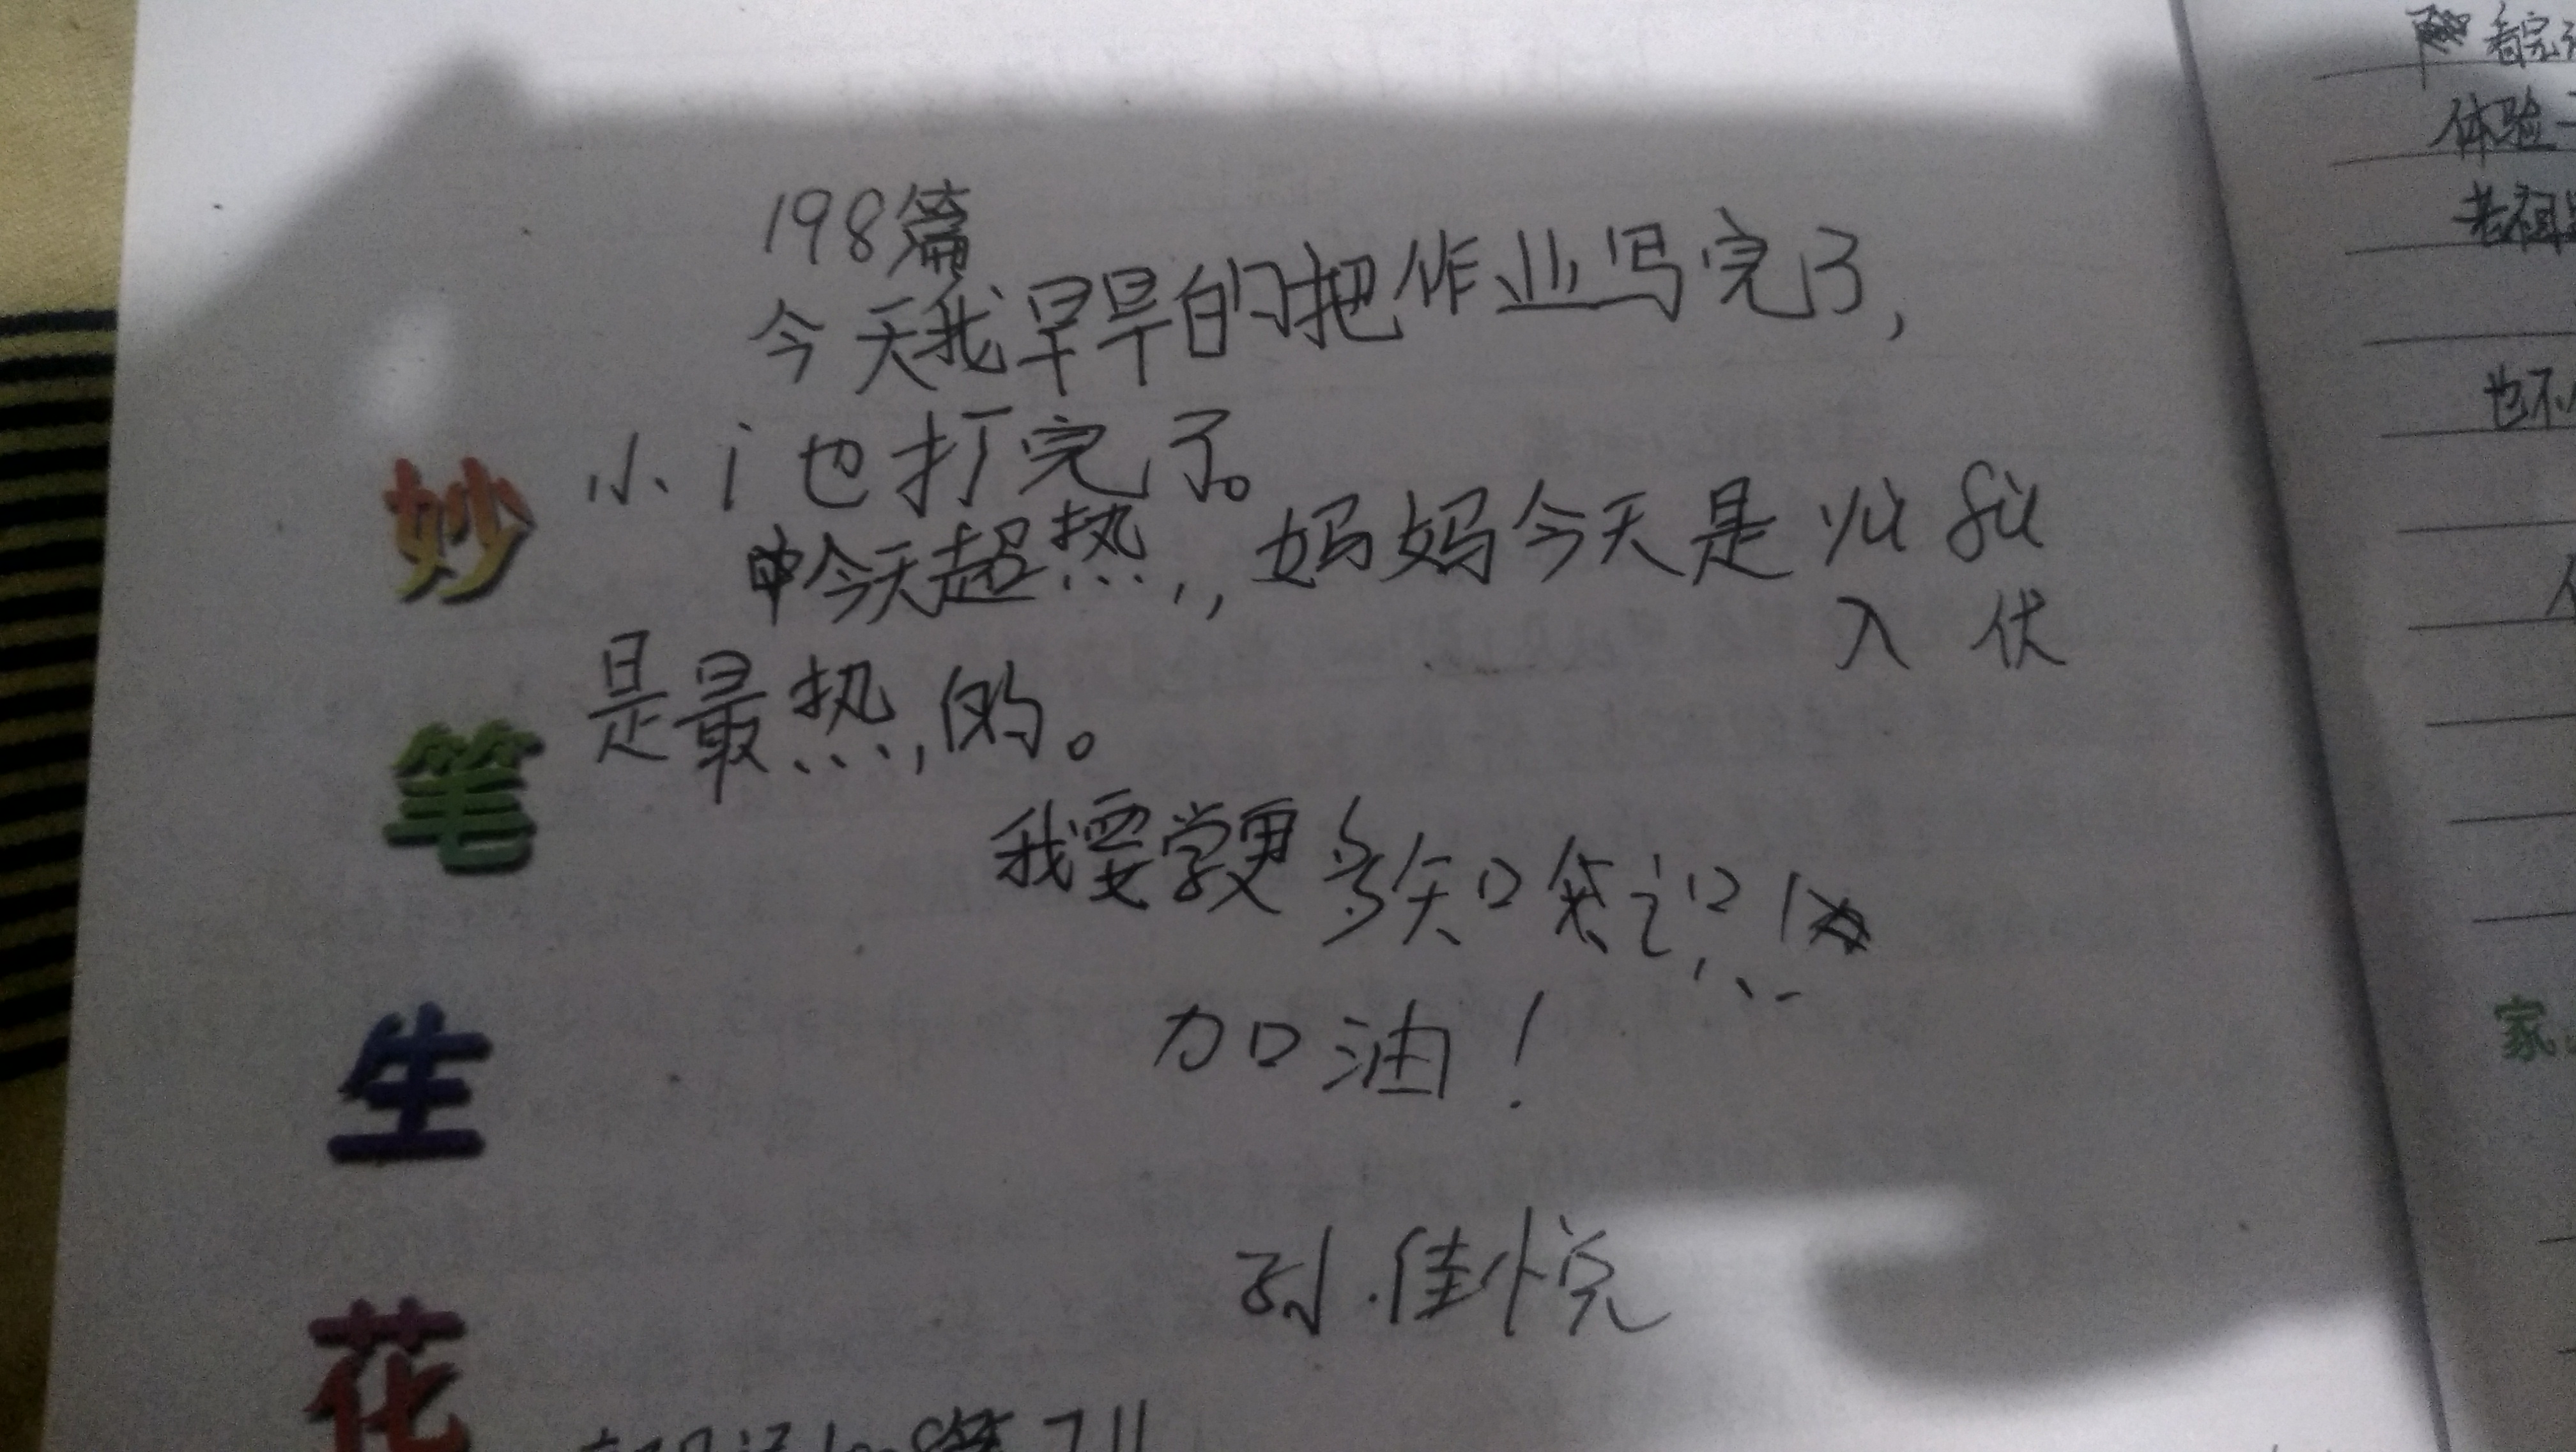 198篇
今天我早早的把作业写完了,
小i也打完了。
今天超热,,妈妈今天是 yù fù
入 伏
是最热,的。
我要学更多知识!
加油!
孙.佳悦
妙
笔
生
花
看完
体验
老祖
也不
家